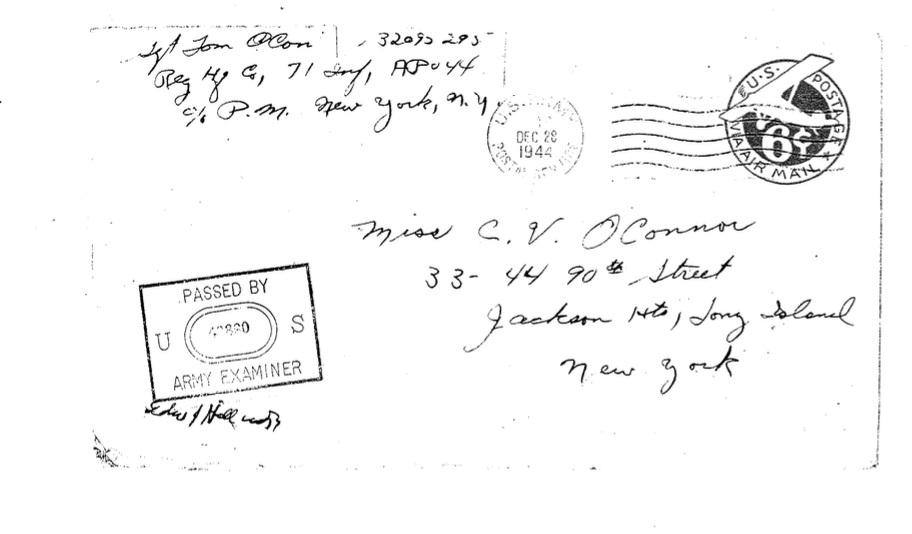 Sgt Tom O'Con 32095295
Reg Hq Co, 71 Inf, APO 44
c/o P.M. New York, N.Y.
U.S. ARMY
DEC 28
1944
POSTAL SERVICE
U.S. POSTAGE
6¢
VIA AIR MAIL
Miss C. V. O'Connor
33-44 90th Street
Jackson Hts, Long Island
New York
PASSED BY
U S
ARMY EXAMINER